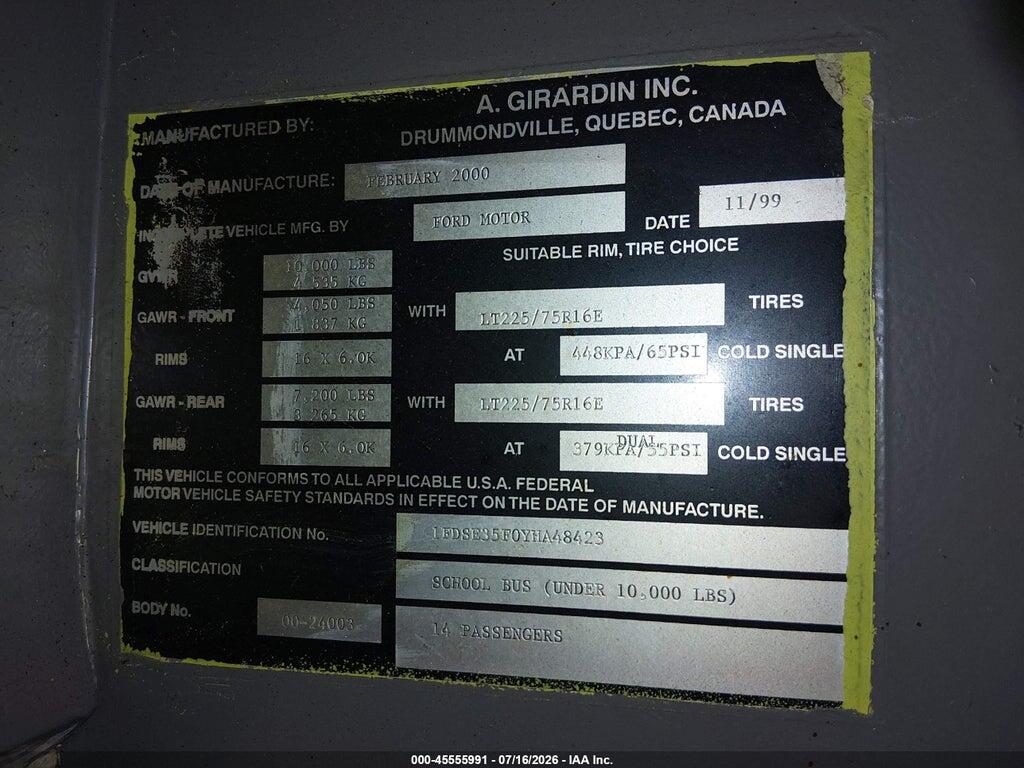 A. GIRARDIN INC.
MANUFACTURED BY: DRUMMONDVILLE, QUEBEC, CANADA
DATE OF MANUFACTURE: FEBRUARY 2000
INCOMPLETE VEHICLE MFG. BY FORD MOTOR DATE 11/99
SUITABLE RIM, TIRE CHOICE
GVWR 10,000 LBS
4,535 KG
GAWR - FRONT 4,050 LBS WITH LT225/75R16E TIRES
1,837 KG
RIMS 16 X 6.0K AT 448KPA/65PSI COLD SINGLE
GAWR - REAR 7,200 LBS WITH LT225/75R16E TIRES
3,265 KG
DUAL
RIMS 16 X 6.0K AT 379KPA/55PSI COLD SINGLE
THIS VEHICLE CONFORMS TO ALL APPLICABLE U.S.A. FEDERAL
MOTOR VEHICLE SAFETY STANDARDS IN EFFECT ON THE DATE OF MANUFACTURE.
VEHICLE IDENTIFICATION No. 1FDSE35F0YHA48423
CLASSIFICATION SCHOOL BUS (UNDER 10,000 LBS)
BODY No. 00-24003 14 PASSENGERS
000-45555991 - 07/16/2026 - IAA Inc.